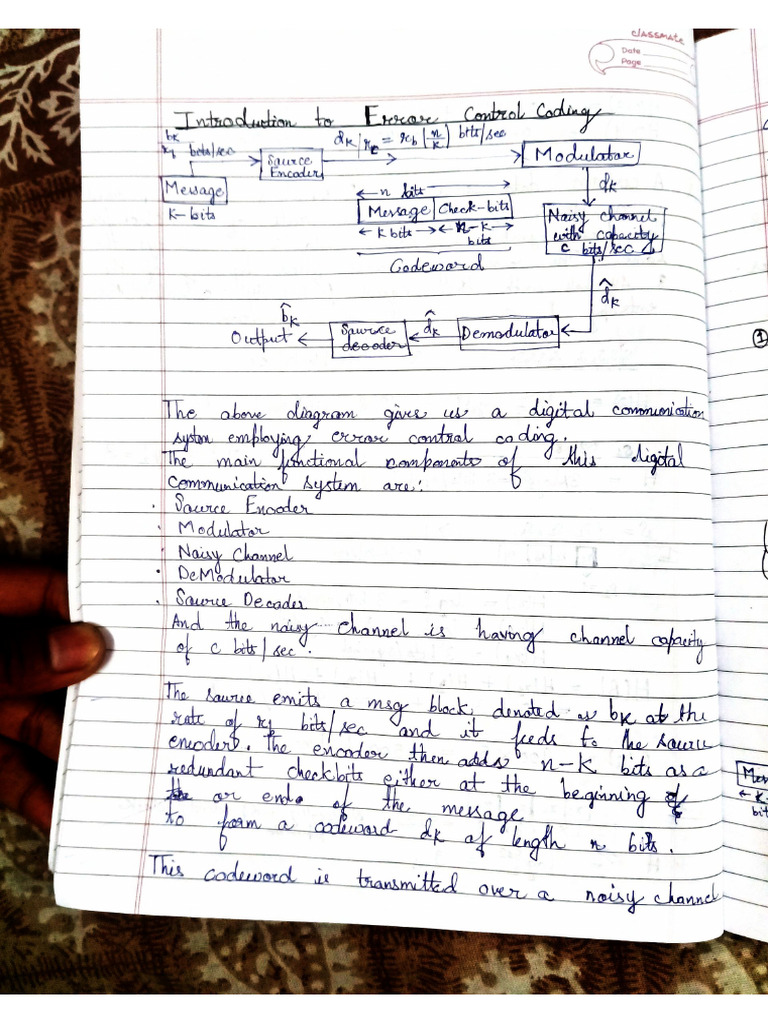 classmate
Date
Page
Introduction to Error Control Coding
bk
bits/sec
Message
k-bits
Source Encoder
dk | rc = rb (n/k) bits/sec
Modulator
dk
n bits
Message | Check-bits
k bits n-k bits
Codeword
Noisy channel
with capacity
c bits/sec
d̂k
Demodulator
d̂k
Source decoder
b̂k
Output
The above diagram gives us a digital communication
system employing error control coding.
The main functional components of this digital
communication system are:
· Source Encoder
· Modulator
· Noisy Channel
· DeModulator
· Source Decoder
And the noisy channel is having channel capacity
of c bits/sec.
The source emits a msg block, denoted as bk at the
rate of bits/sec and it feeds to the source
encoder. The encoder then adds n-k bits as a
redundant checkbits either at the beginning of
or end of the message
to form a codeword dk of length n bits.
This codeword is transmitted over a noisy channel
1
Mes
k-
bit